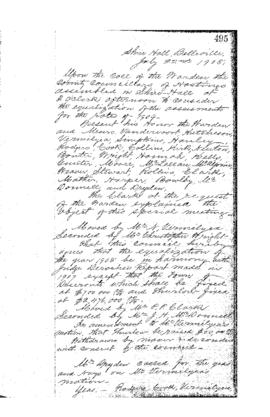 495
Shire Hall, Belleville,
July 22nd 1908.
Upon the call of the Warden the
County Councillors of Hastings
assembled in Shire Hall at
2 o'clock afternoon to consider
the equalization of the assessments
for the rates of 1909.
Present his Honor the Warden
and Messrs Vandervoort, Hutcheson,
Vermilyea, Sanderson, Hanley,
Rodgers, Cook, Collins, Kirk, Denton,
Wright, Hannah, Kelly,
Coulter, Moore, McLellan,
Weaver, Stewart, Rollins, Clark,
Mather, Harper, Bowlby, Mc
Donnell and Dryden.
The Clerk at the request
of the Warden explained the
object of this special meeting.
Moved by Mr N. Vermilyea
Seconded by Mr Christopher Wright
That this Council hereby
agree that the equalization of
the year 1908 be in harmony with
Judge Deroche's Report made in
1907 except the Town of
Deseronto which shall be fixed
at $700.000 and Thurlow fixed
at $2,476,000
Moved by Mr F. R. Clark
Seconded by Mr J. H. McDonnell
In amendment to Mr Vermilyea's
motion, that Thurlow be raised
Withdrawn by mover & seconder
with consent of the council.
Mr Dryden called for the yeas
and nays on Mr Vermilyea's
motion.
Yeas. — Rodgers, Cook, Vermilyea